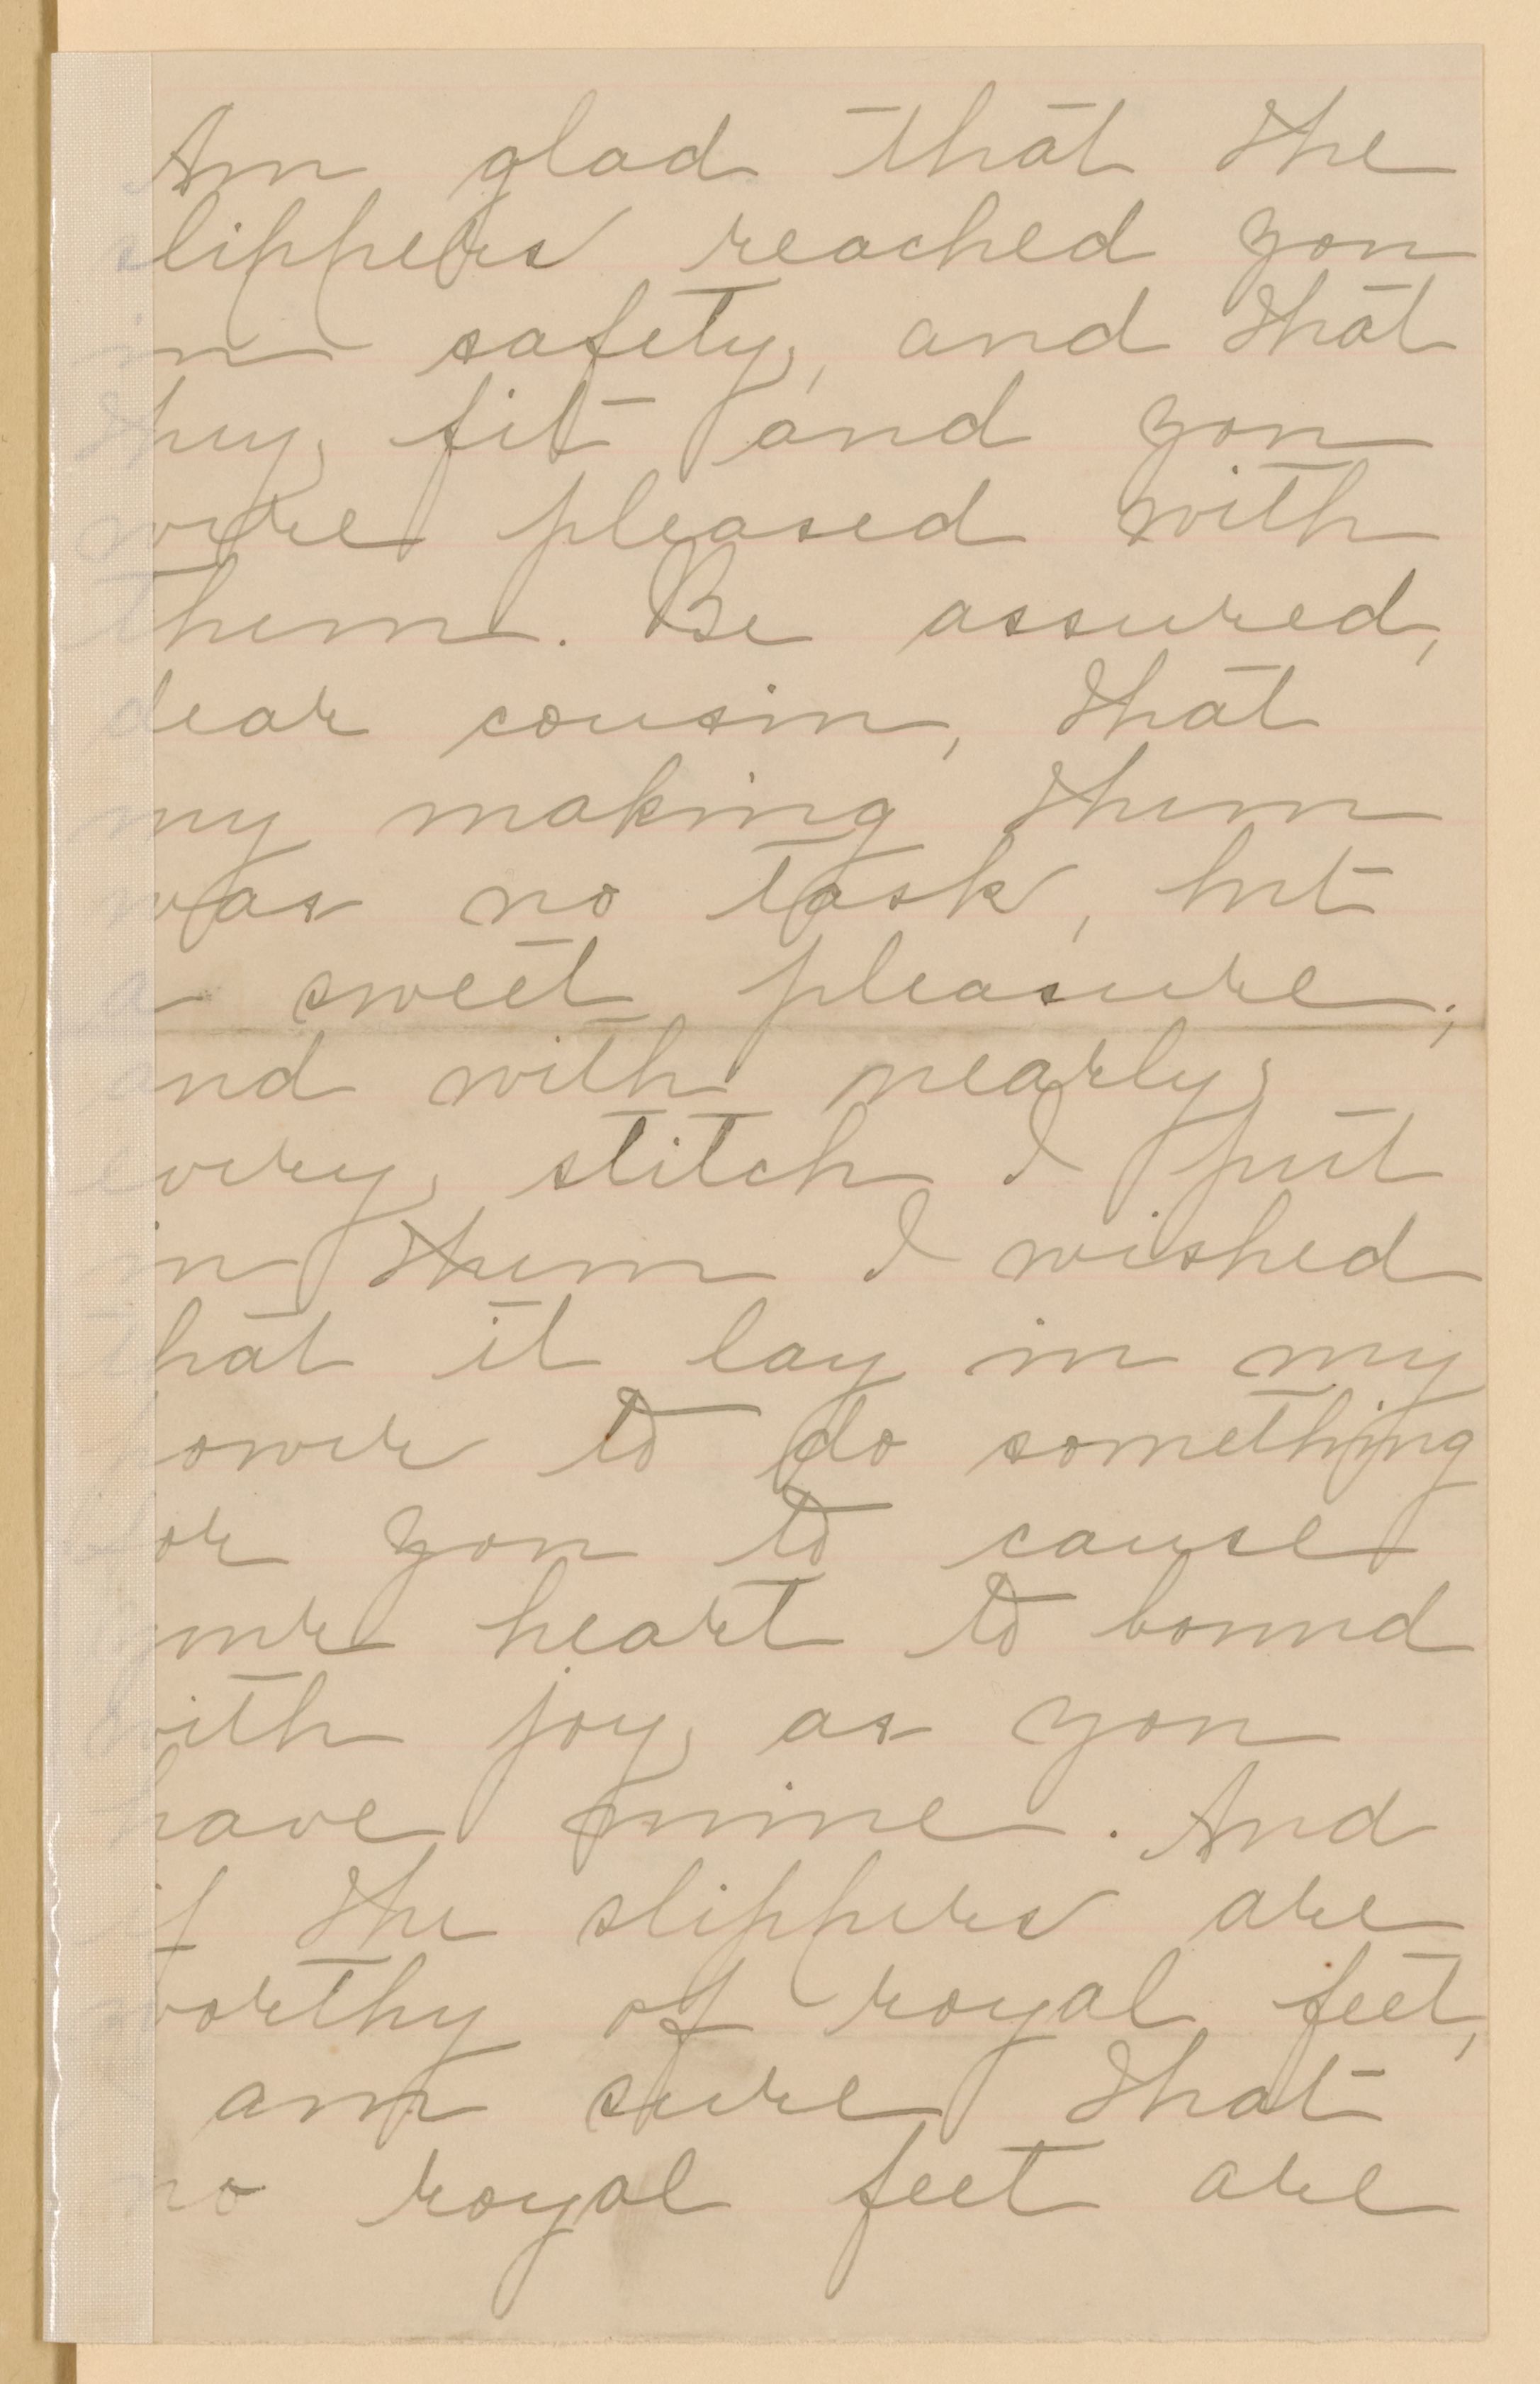 Am glad that the
slippers reached you
in safety, and that
they fit and you
were pleased with
them. Be assured,
dear cousin, that
my making them
was no task, but
a sweet pleasure;
and with nearly
every stitch I put
in them I wished
that it lay in my
power to do something
for you to cause
your heart to bound
with joy as you
have mine. And
if the slippers are
worthy of royal feet,
I am sure that
no royal feet are